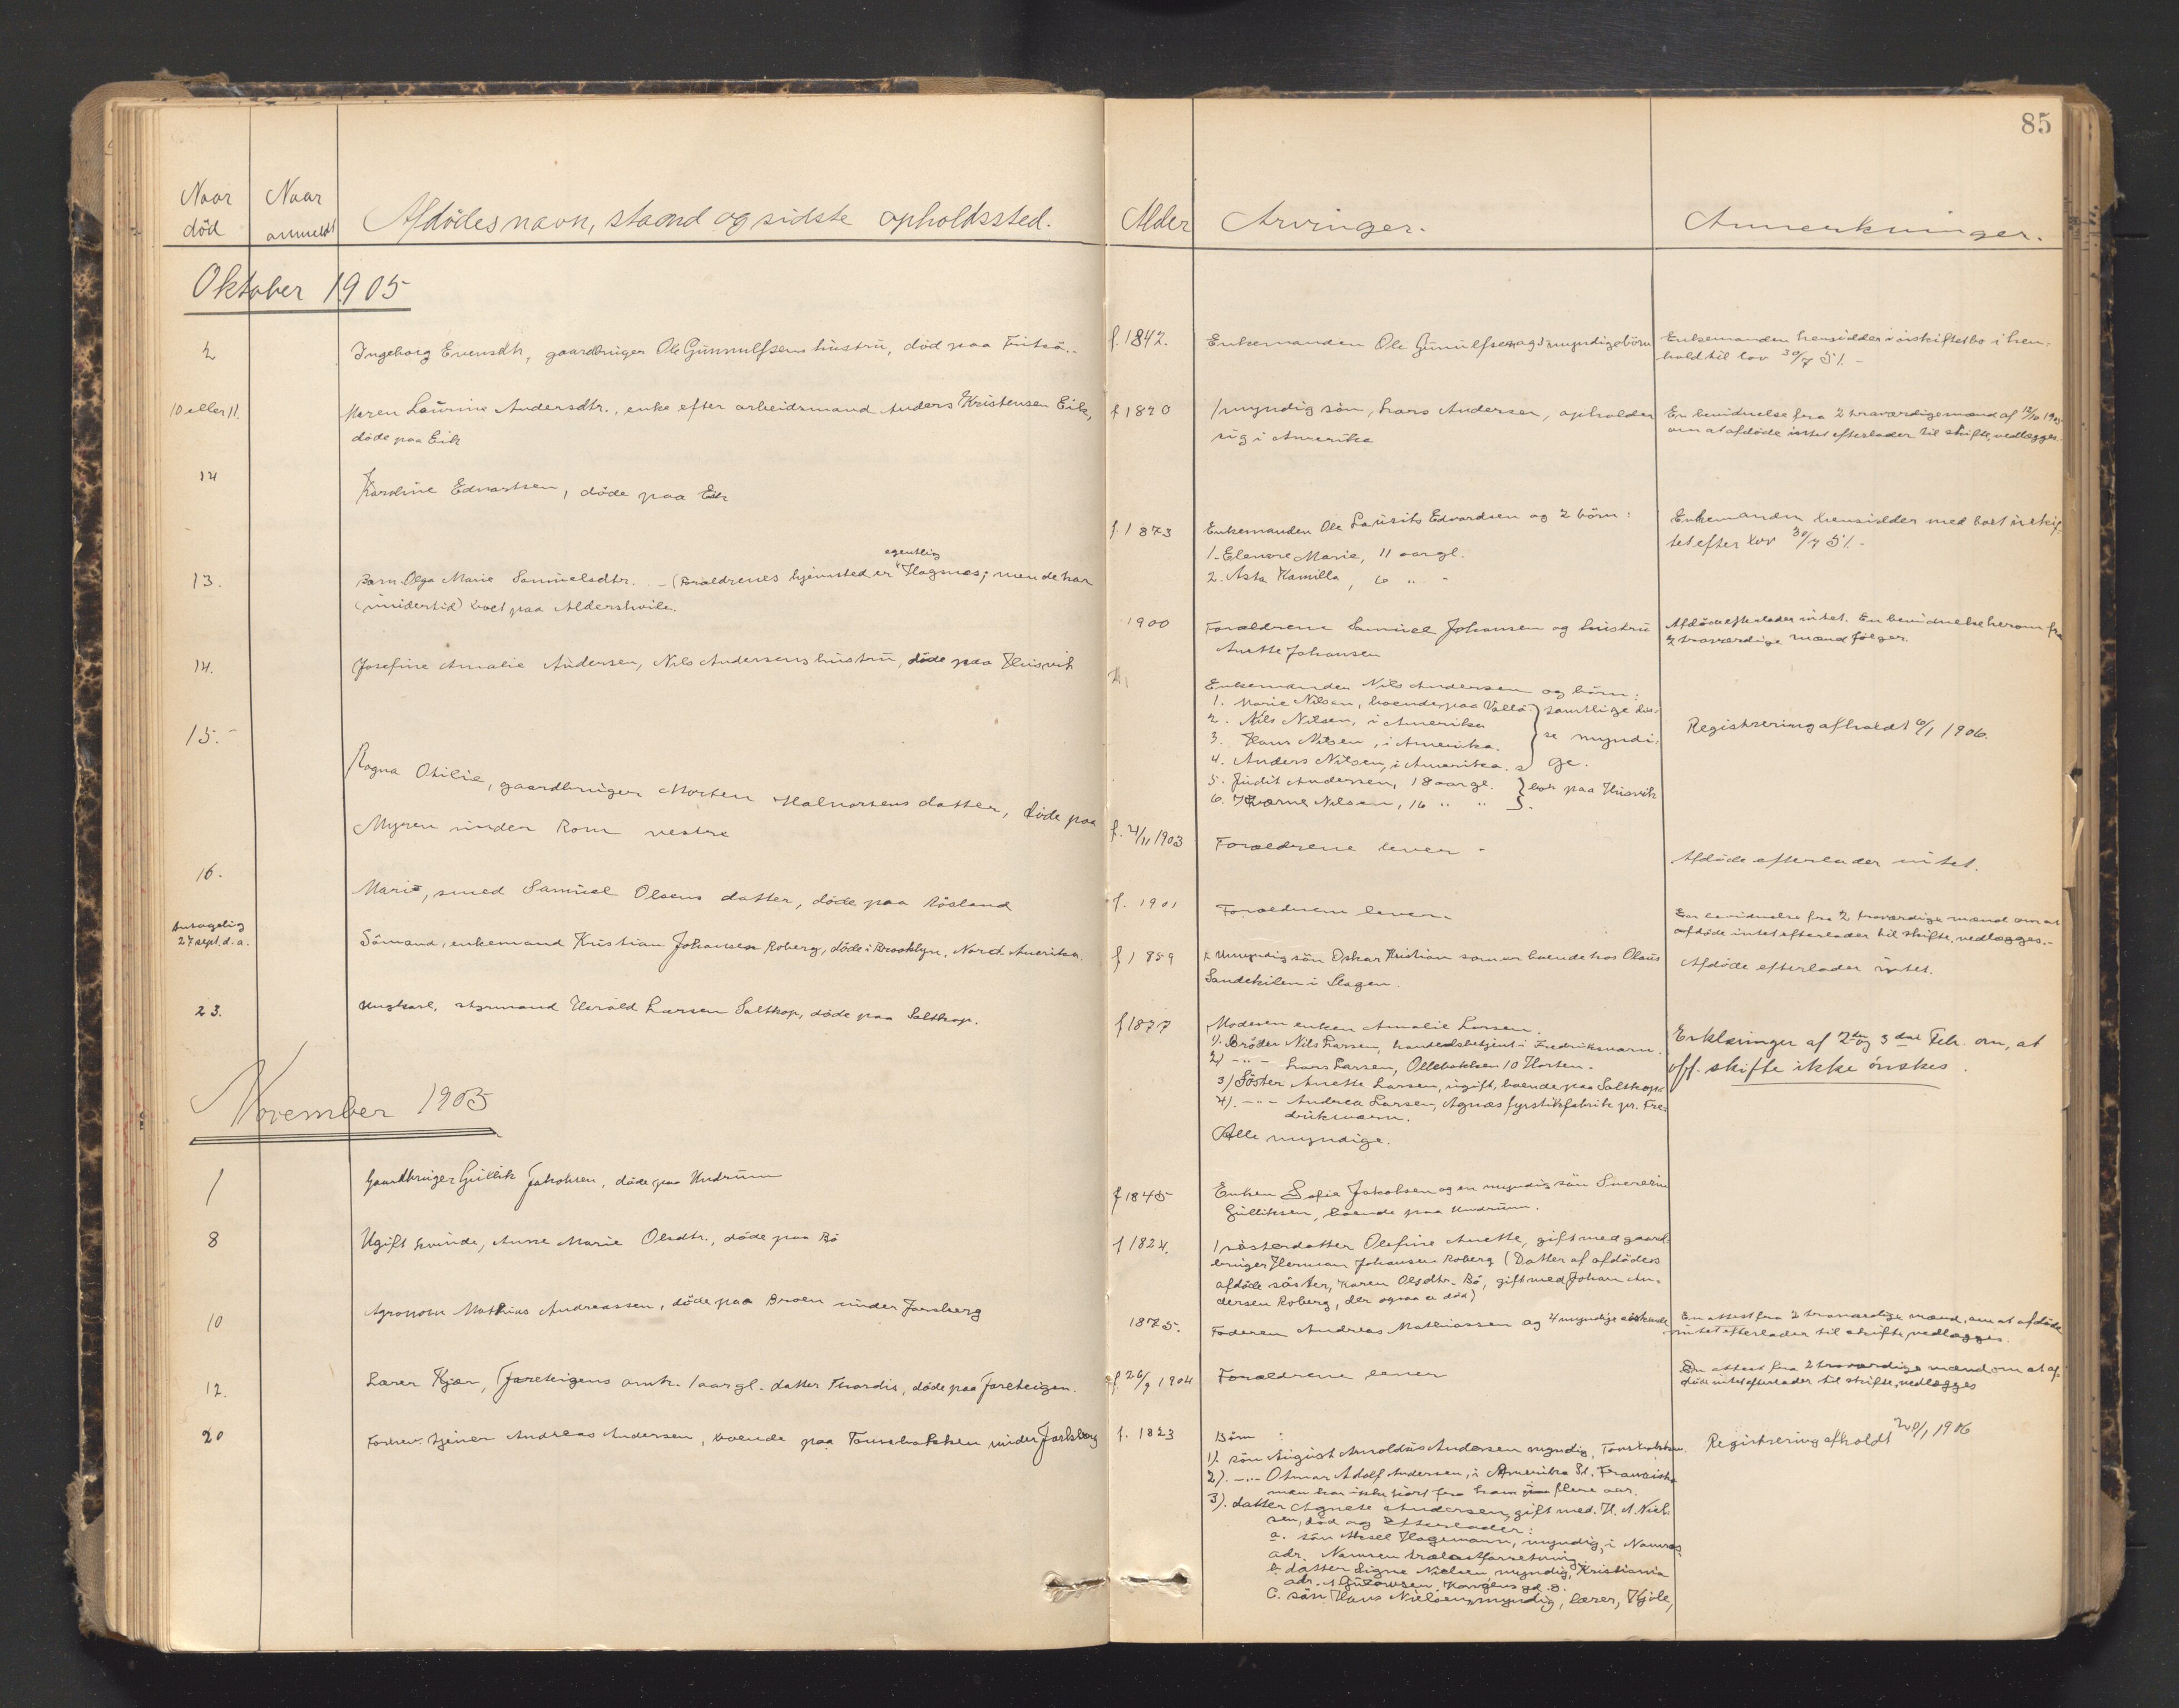 85
Naar død
Naar anmeldt
Afdødes navn, stand og sidste opholdssted.
Alder
Arvinger.
Anmerkninger.
Oktober 1905
2
Ingeborg Evensdtr, gaardbruger Ole Gunnulfsens hustru, död paa
f. 1842.
Enkemanden Ole Gunulfsen og myndige børn
Enkemanden hensidder i uskiftetbo i hen-
hold til lov 30/7 51.-
10 eller 11.
Maren Laurine Andersdtr., enke efter arbeidsmand Anders Kristensen Eik,
döde paa Eik
f 1820
1 myndig sön, Lars Andersen, opholder
sig i Amerika
En bevidnelse fra 2 troværdige mænd af 12/10 1905
om at afdöde intet efterlader til skifte, vedlægges.
14
Karoline Edvartsen, döde paa Eik
f. 1873
Enkemanden Ole Lausits Edvardsen og 2 börn:
1. Elenore Marie, 11 aargl.
2. Asta Kamilla, 6 " -
Enkemanden hensidder med boet uskif-
tet efter lov 30/7 51.-
13.
egentlig
Barn Olga Marie Samuelsdtr. - (Forældrenes hjemsted er Hagnes; men de har
(undertid) boet paa Aldershvile.
1900
Forældrene Samuel Johansen og hustru
Anette Johansen
Afdöde efterlader intet. En bevidnelse herom fra
2 troværdige mænd følger.
14.
Josefine Amalie Andersen, Nils Andersens hustru, döde paa Husvik
Enkemanden Nils Andersen og börn:
1. Marie Nilsen, boende paa Vallö } samtlige dis-
2. Nils Nilsen, i Amerika
3. Hans Nilsen, i Amerika. } se myndi-
4. Anders Nilsen, i Amerika. ge.
5. Judit Andersen, 18 aar gl. } bor paa Husvik
6. Nilsen, 16 " "
Registrering afholdt 6/1 1906.
15.-
Ragna Otilie, gaardbruger Morten Halvorsens datter, döde paa
Myren under Rom vestre
f. 4/11 1903
Forældrene lever -
Afdöde efterlader intet.
16.
Marie, smed Samuel Olsens datter, döde paa Råsland
f. 1901
Forældrene lever.
En bevidnelse fra 2 troværdige mænd om at
afdöde intet efterlader til skifte, vedlægges.-
Antagelig
27 sept. d.a.
Sömand, enkemand Kristian Johansen Roberg, döde i Brooklyn, Nord Amerika.
f 1859
1 umyndig sön Oskar Kristian som er boende hos Olaus
Sandekilen i Slagen.
Afdöde efterlader intet.
23.
Ungkarl, styrmand Harald Larsen Saltkop, döde paa Saltkop.
f 1877
Moderen enken Amalie Larsen.
1). Bröder Nils Larsen, handelsbetjent i Fredriksværn.
2) -"- Lars Larsen, Ollebakken 10 Horten.
3) Söster Anette Larsen, ugift, boende paa Saltkop.
4). -"- Andrea Larsen, Agnæs fyrstikfabrik pr. Fre-
driksværn.
Alle myndige.
Erklæringer af 2den og 3die Febr. om, at
off. skifte ikke önskes.
November 1905
1
Gaardbruger Gullik Jakobsen, döde paa Undrum
f 1845
Enken Sofie Jakobsen og en myndig sön Severin
Gulliksen, boende paa Undrum.
8
Ugift kvinde, Anne Marie Olsdtr., döde paa Bö
f 1824.
1 sösterdatter Olefine Anette, gift med gaard-
bruger Herman Johansen Roberg (Datter af afdödes
afdöde söster, Karen Olsdtr. Bö, gift med Johan An-
dersen Roberg, der ogsaa er död)
10
Agronom Mathias Andreassen, döde paa Broen under Jarlsberg
1875.
Faderen Andreas Mathiassen og 4 myndige söskende
En attest fra 2 troværdige mænd, om at afdöde
intet efterlader til skifte, vedlægges.
12.
Lærer Kjær, Jareteigens omtr. 1 aargl. datter Thordis, döde paa Jareteigen.
f 26/9 1904
Forældrene lever
En attest fra 2 troværdige mænd om at af-
döde intet efterlader til skifte, vedlægges
20
Forhev. tjener Andreas Andersen, boende paa Tømsbakken under Jarlsberg
f. 1823
Börn:
1). sön August Arnoldus Andersen myndig,
2). -"- Otmar Adolf Andersen, i Amerika St. Franzisko
man har ikke hört fra ham paa flere aar.
3). datter Agnete Andersen, gift med H. A. Niel-
sen, död og efterlader:
a. sön Aksel Hagemann, myndig, i Namsos
adr. Namsen trælastforretning.
b. datter Signe Nielsen myndig, Kristiania
adr. Kongens gd. 8.
C. sön Hans Nielsen, myndig, lærer, Kjöle,
Registrering afholdt 20/1 1906